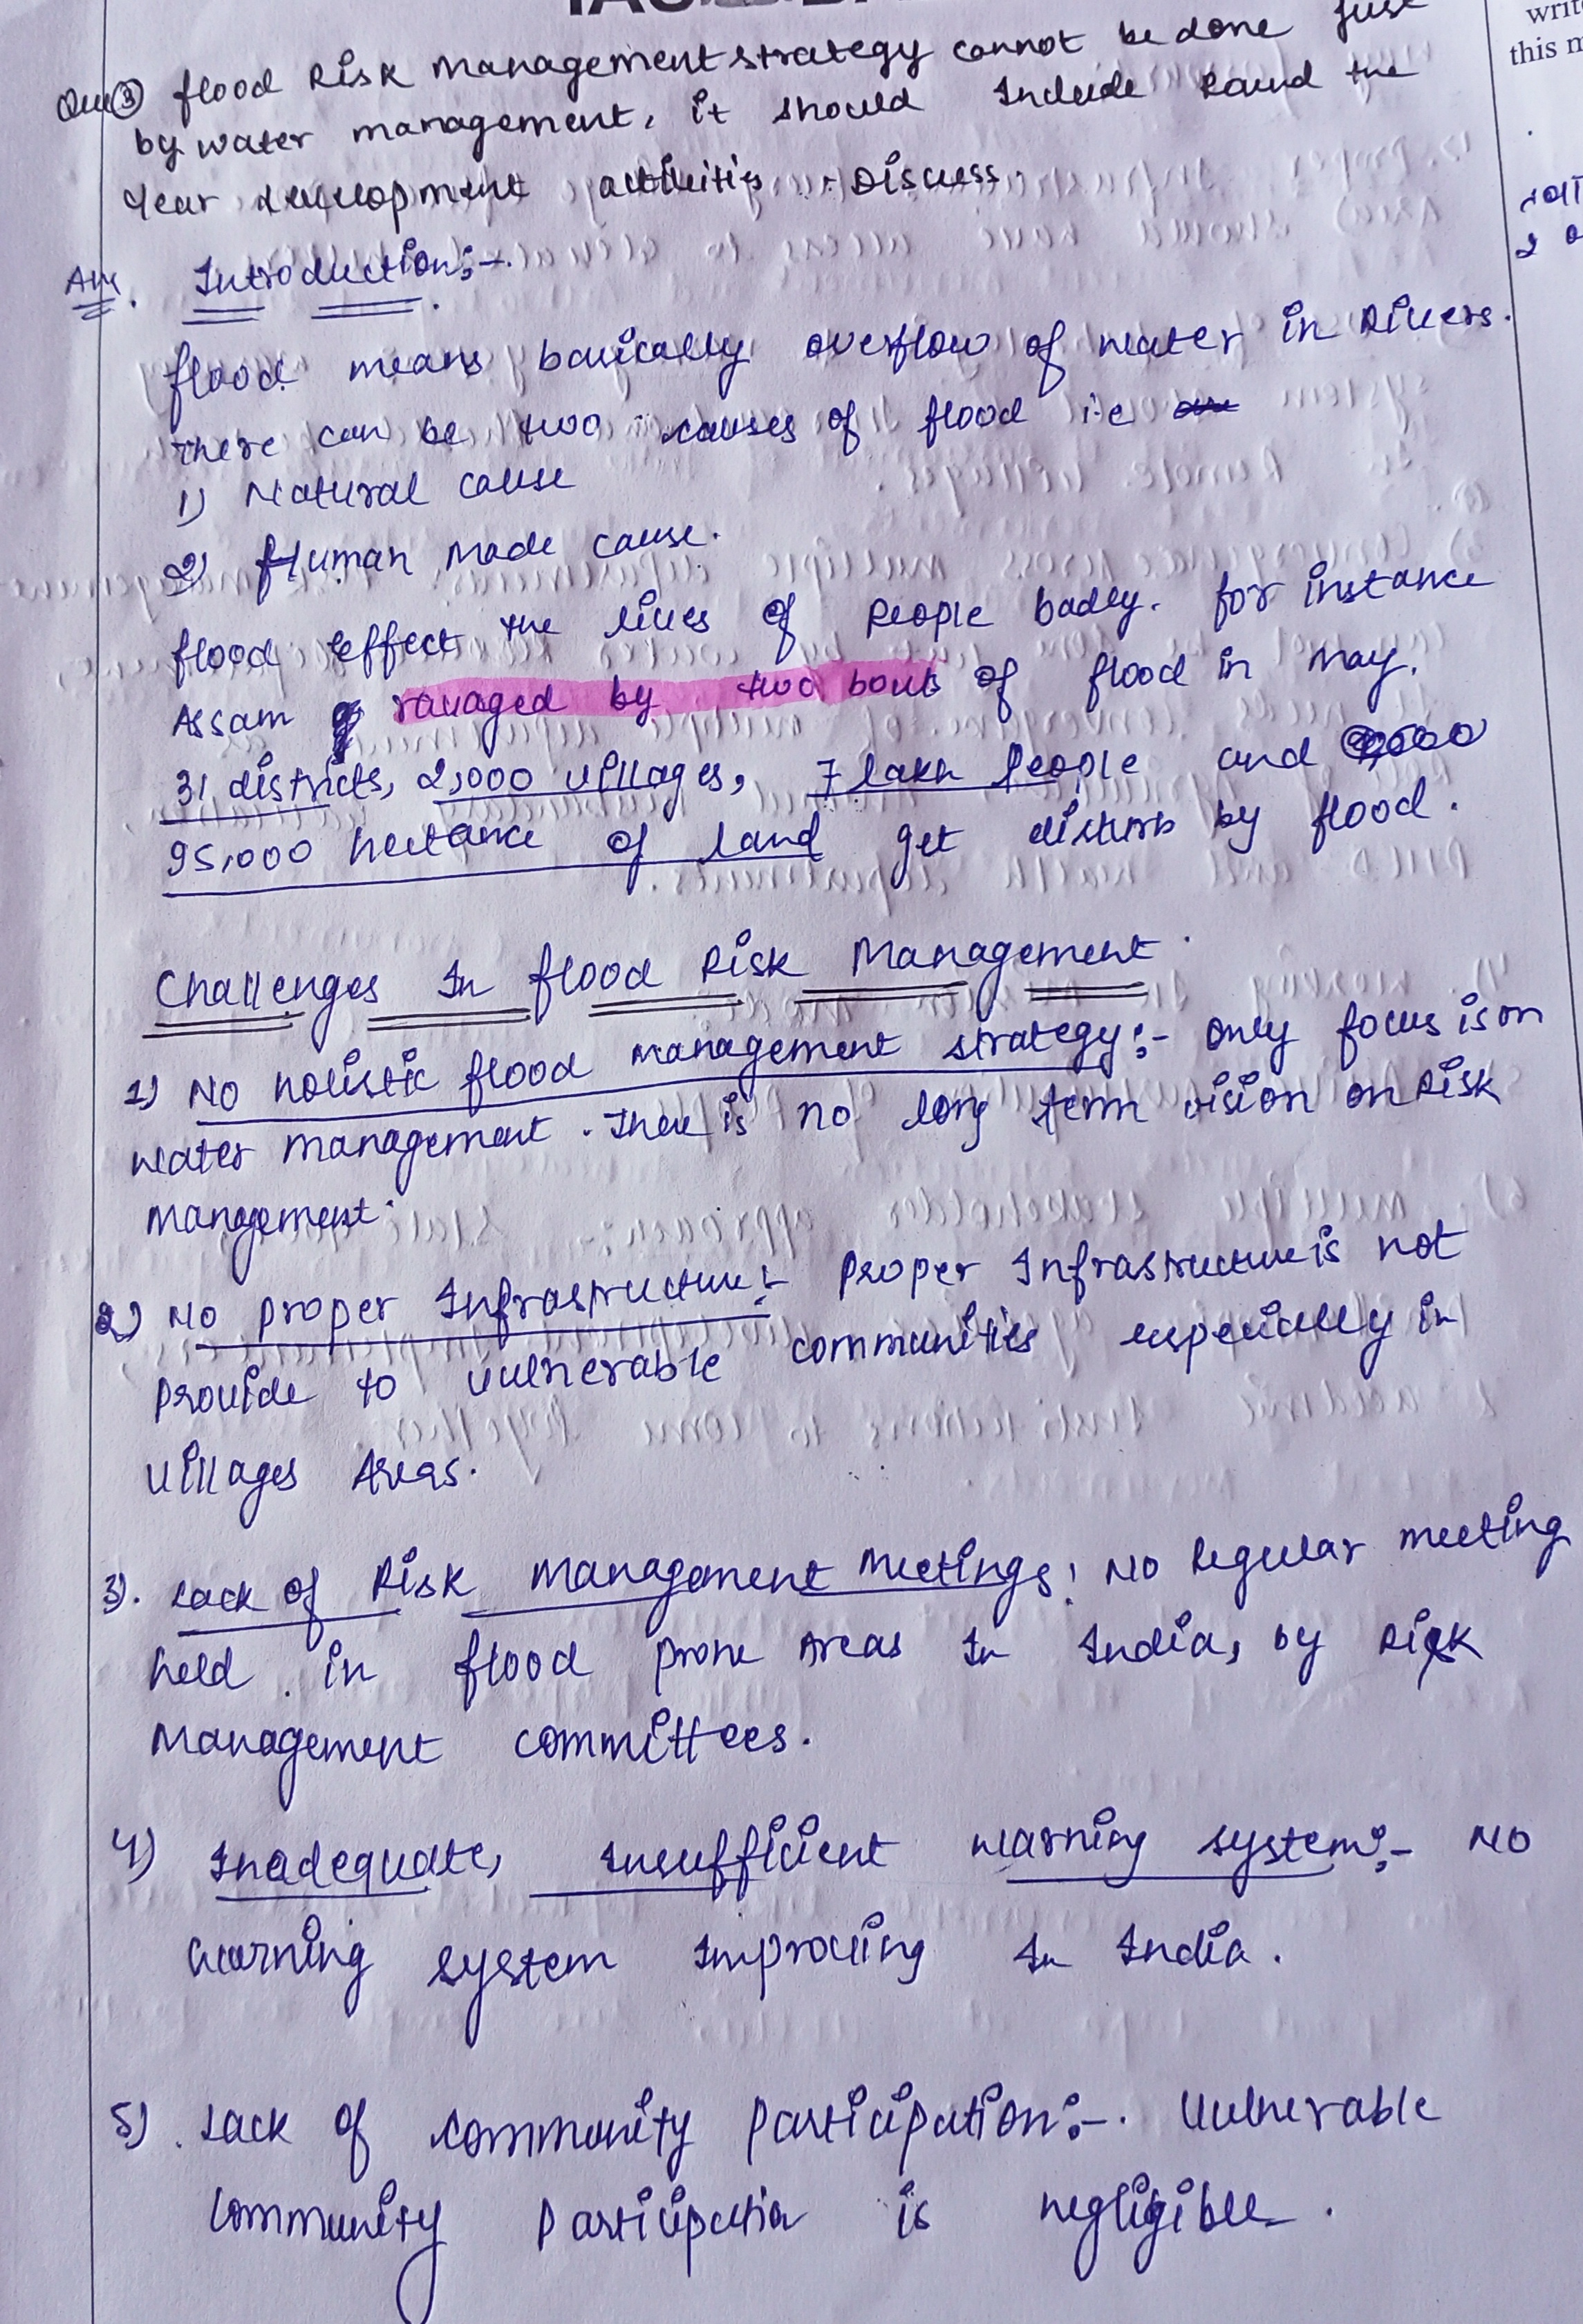 Que ③ flood Risk management strategy cannot be done just
by water management, it should Include Round the
Year development activities. Discuss.
Ans. Introduction:-
flood means basically overflow of water in Rivers.
There can be two causes of flood i.e
1) Natural cause
2) Human Made cause.
flood effect the lives of People badly. for instance
Assam ravaged by two bouts of flood in May.
31 districts, 2,000 villages, 7 lakh People and
95,000 hectance of land get disturb by flood.
Challenges In flood Risk Management
1) No holistic flood management strategy:- only focus is on
water management. There is no long term vision on Risk
Management.
2) No proper Infrastructure:- Proper Infrastructure is not
Provide to vulnerable communities especially in
villages Areas.
3). Lack of Risk management Meetings: No Regular meeting
held in flood prone Areas In India, by Risk
Management committees.
4) Inadequate, Insufficient warning system:- No
warning system Improving In India.
5) Lack of community Participation:-. Vulnerable
Community Participation is negligible.
writ
this m
2